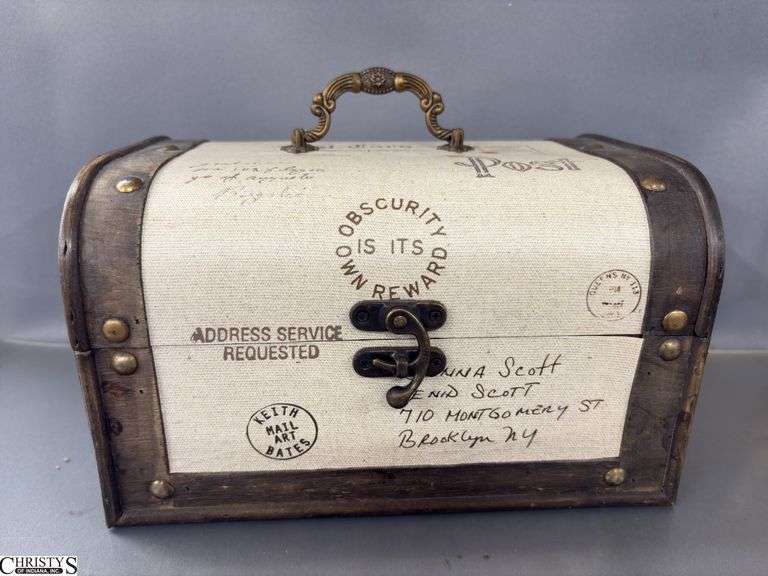 Post
OBSCURITY
IS ITS
OWN REWARD
QUEENS NY 113
PM
ADDRESS SERVICE
REQUESTED
NNA Scott
ENID SCOTT
710 MONTGOMERY ST
Brooklyn NY
KEITH
MAIL
ART
BATES
CHRISTYS
OF INDIANA, INC.